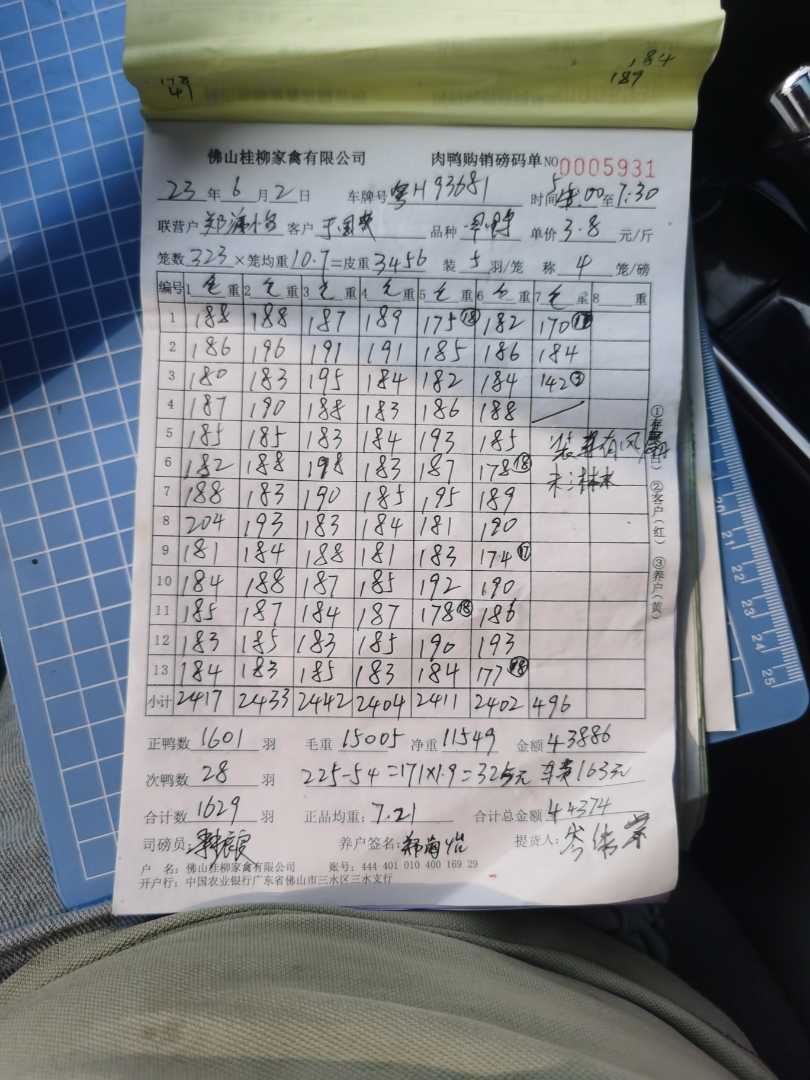 184
189
佛山桂柳家禽有限公司 肉鸭购销磅码单 NO 0005931
23 年 6 月 2 日 车牌号 粤H93681 时间 :00 至 7:30
联营户 郑海怡 客户 品种 单价 3.8 元/斤
笼数 323 ×笼均重 10.7 =皮重 3456 装 5 羽/笼 称 4 笼/磅
编号 1 毛 重 2 毛 重 3 毛 重 4 毛 重 5 毛 重 6 毛 重 7 毛 重 8 重
1 188 188 187 189 175⑱ 182 170
2 186 196 191 191 185 186 184
3 180 183 195 184 182 184 142
4 187 190 188 183 186 188
5 185 185 183 184 193 185
6 182 188 198 183 187 178⑱
7 188 183 190 185 195 189
8 204 193 183 184 181 190
9 181 184 188 181 183 174⑰
10 184 188 187 185 192 190
11 185 187 184 187 178⑱ 186
12 183 185 183 185 190 193
13 184 183 185 183 184 177⑱
小计 2417 2433 2442 2404 2411 2402 496
装车有风
未淋水
②客户(红) ③养户(黄)
正鸭数 1601 羽 毛重 15005 净重 11549 金额 43886
次鸭数 28 羽 225-54=171×1.9=325元 车费163元
合计数 1629 羽 正品均重: 7.21 合计总金额 44374
司磅员: 养户签名: 郑海怡 提货人:
户 名: 佛山桂柳家禽有限公司 账号: 444 401 010 400 169 29
开户行: 中国农业银行广东省佛山市三水区三水支行
20
21
22
23
24
25